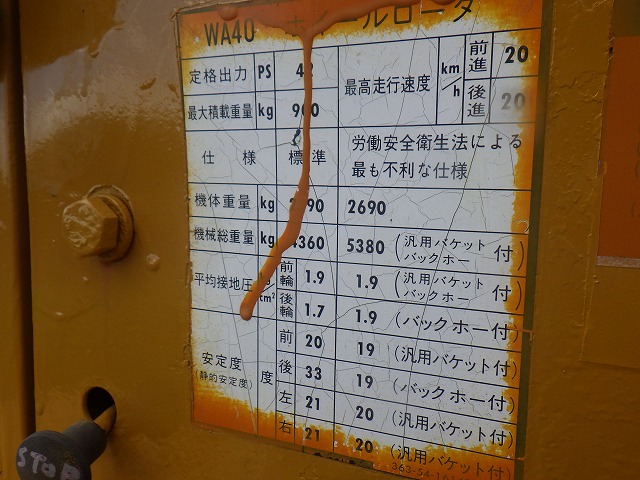 WA40 ホイールローダ
定格出力 PS 42 最高走行速度 km/h 前進 20
最大積載重量 kg 900 後進 20
仕様 標準 労働安全衛生法による
最も不利な仕様
機体重量 kg 2690
機械総重量 kg 4360 5380 (汎用バケット バックホー 付)
平均接地圧 cm² 前輪 1.9 1.9 (汎用バケット バックホー 付)
後輪 1.7 1.9 (バックホー付)
安定度 (静的安定度) 度 前 20 19 (汎用バケット付)
後 33 19 (バックホー付)
左 21 20 (汎用バケット付)
右 21 20 (汎用バケット付)
STOP